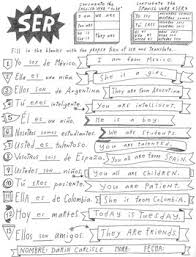 SER
CONJUGATE THE SPANISH VERB "SER"
CONJUGATE THE ENGLISH VERB "TO BE"
Fill in the blanks with the proper form of SER and translate.
Yo soy de México. I am from Mexico.
Ella es una niña. She is a girl.
Ellos son de Argentina. They are from Argentina.
Tú eres inteligente. You are intelligent.
Él es un niño. He is a boy.
Nosotros somos estudiantes. We are students.
Usted es talentoso. You are talented.
Vosotros sois de España. You all are from Spain.
Ustedes son niños. You all are children.
Tú eres paciente. You are patient.
Ella es de Colombia. She is from Colombia.
Hoy es martes. Today is Tuesday.
Ellos son amigos. They are friends.
NOMBRE: DARIN CARLISLE HORA: FECHA: